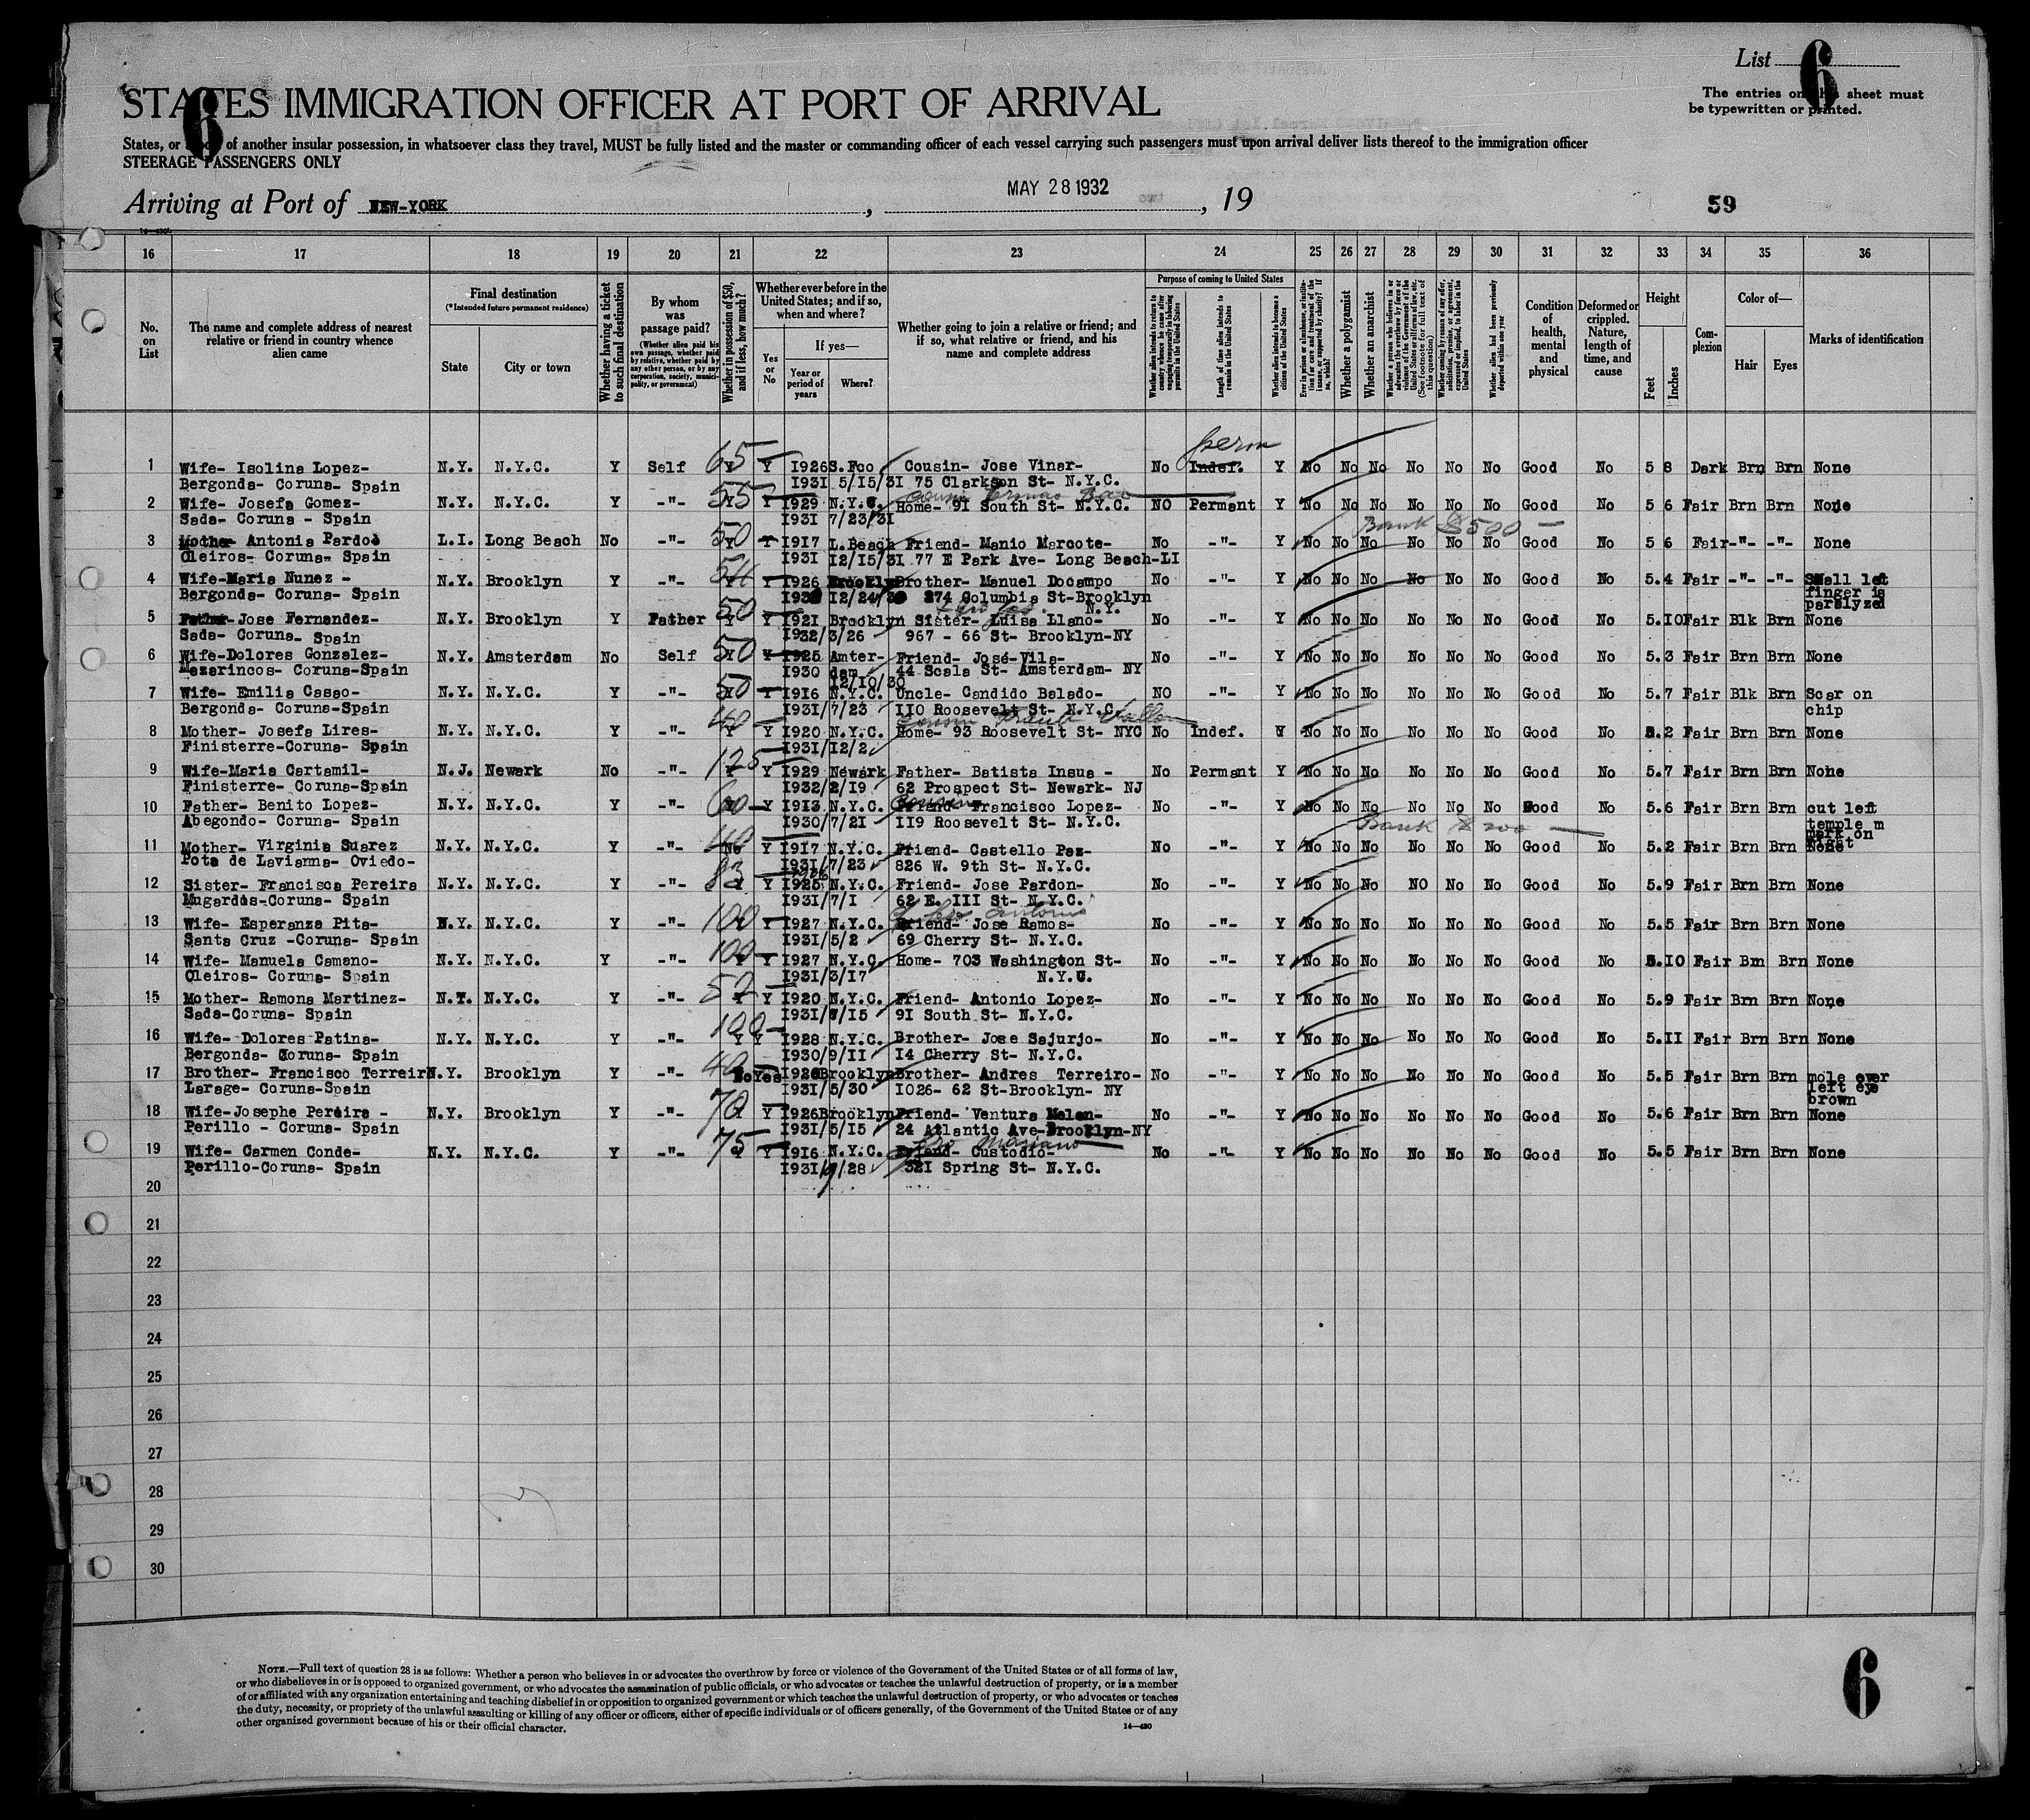 List 6
The entries on this sheet must
be typewritten or printed.
STATES IMMIGRATION OFFICER AT PORT OF ARRIVAL
6
States, or a port of another insular possession, in whatsoever class they travel, MUST be fully listed and the master or commanding officer of each vessel carrying such passengers must upon arrival deliver lists thereof to the immigration officer
STEERAGE PASSENGERS ONLY
Arriving at Port of NEW-YORK, MAY 28 1932, 19
59
14—430
16 17 18 19 20 21 22 23 24 25 26 27 28 29 30 31 32 33 34 35 36
No. on List
The name and complete address of nearest relative or friend in country whence alien came
Final destination
(*Intended future permanent residence)
State
City or town
Whether having a ticket to such final destination
By whom was passage paid?
(Whether alien paid his own passage, whether paid by relative, whether paid by any other person, or by any corporation, society, municipality, or government)
Whether in possession of $50, and if less, how much?
Whether ever before in the United States; and if so, when and where?
Yes or No
If yes—
Year or period of years
Where?
Whether going to join a relative or friend; and if so, what relative or friend, and his name and complete address
Purpose of coming to United States
Whether alien intends to return to country whence he came after engaging temporarily in laboring pursuits in the United States
Length of time alien intends to remain in the United States
Whether alien intends to become a citizen of the United States
Whether a polygamist
Whether an anarchist
Whether alien had been previously deported within one year
Condition of health, mental and physical
Deformed or crippled. Nature, length of time, and cause
Height
Feet
Inches
Complexion
Color of—
Hair
Eyes
Marks of identification
perm
1 Wife- Isolina Lopez- N.Y. N.Y.C. Y Self 65 Y Y 1926 S.Fco Cousin- Jose Vinar- No Indef. Y No No No No No No Good No 5 8 Dark Brn Brn None
Bergonda- Coruna- Spain 1931 5/15/31 75 Clarkson St- N.Y.C.
2 Wife- Josefa Gomez- N.Y. N.Y.C. Y -"- 55 Y 1929 N.Y.C. Home- 91 South St- N.Y.C. NO Permant Y No No No No No No Good No 5 6 Fair Brn Brn None
Sada- Coruna - Spain 1931 7/23/31
Bank $500 —
3 Mother Antonia Pardo L.I. Long Beach No -"- 50 Y Y 1917 L.Beach Friend- Manio Marcote- No -"- Y No No No No No No Good No 5 6 Fair -"- -"- None
Oleiros- Coruna- Spain 1931 12/15/31 77 E Park Ave- Long Beach-LI
4 Wife-Maria Nunez - N.Y. Brooklyn Y -"- Y 1926 Brooklyn Brother- Manuel Docampo No -"- Y No No No No No No Good No 5.4 Fair -"- -"- Small left
Bergonda- Coruna- Spain 274 Columbia St-Brooklyn finger is
N.Y. paralyzed
5 Father-Jose Fernandez- N.Y. Brooklyn Y Father 50 Y Y 1921 Brooklyn Sister- Luisa Llano- No -"- Y No No No No No No Good No 5.10 Fair Blk Brn None
Sada- Coruna- Spain 1932/3/26 967 - 66 St- Brooklyn-NY
6 Wife-Dolores Gonzalez- N.Y. Amsterdam No Self 50 Y Y 1925 Amter- Friend- José-Vila- No -"- Y No No No No No No Good No 5.3 Fair Brn Brn None
Mazarincos- Coruna-Spain 1930 dam 44 Scala St- Amsterdam- NY
12/10/30
7 Wife- Emilia Casao- N.Y. N.Y.C. Y -"- 50 Y Y 1916 N.Y.C. Uncle- Candido Balado- NO -"- Y No No No No No No Good No 5.7 Fair Blk Brn Scar on
Bergonda- Coruna-Spain 1931/7/23 110 Roosevelt St- N.Y.C. chip
8 Mother- Josefa Lires- N.Y. N.Y.C. Y -"- 40 Y Y 1920 N.Y.C. Home- 93 Roosevelt St- NYC No Indef. No No No No No No Good No 5.2 Fair Brn Brn None
Finisterre-Coruna- Spain 1931/12/2
9 Wife-Maria Cartamil- N.J. Newark No -"- 125 Y Y 1929 Newark Father- Batista Insua - No Permant Y No No No No No No Good No 5.7 Fair Brn Brn None
Finisterre- Coruna-Spain 1932/2/19 62 Prospect St- Newark- NJ
10 Father- Benito Lopez- N.Y. N.Y.C. Y -"- 60 Y Y 1913 N.Y.C. Cousin Francisco Lopez- No -"- Y No No No No No No Good No 5.6 Fair Brn Brn cut left
Abegondo- Coruna- Spain 1930/7/21 119 Roosevelt St- N.Y.C. temple m
Bank $200 — mark on
right
11 Mother- Virginia Suarez N.Y. N.Y.C. Y -"- 40 No Y 1917 N.Y.C. Friend- Castello Paz- No -"- Y No No No No No No Good No 5.2 Fair Brn Brn None
Pota de Lavianna- Oviedo- 1931/7/23 826 W. 9th St- N.Y.C.
12 Sister- Francisca Pereira N.Y. N.Y.C. Y -"- 83 Y Y 1925 N.Y.C. Friend- Jose Pardon- No -"- Y No No No NO No No Good No 5.9 Fair Brn Brn None
Mugardos-Coruna- Spain 1931/7/1 62 E. 111 St- N.Y.C.
13 Wife- Esperanza Pita- N.Y. N.Y.C. Y -"- 100 Y 1927 N.Y.C. Friend- Jose Ramos- No -"- Y No No No No No No Good No 5.5 Fair Brn Brn None
Santa Cruz -Coruna- Spain 1931/5/2 69 Cherry St- N.Y.C.
14 Wife- Manuela Camano- N.Y. N.Y.C. Y -"- 100 Y Y 1927 N.Y.C. Home- 703 Washington St- No -"- Y No No No No No No Good No 5.10 Fair Brn Brn None
Oleiros- Coruna- Spain 1931/3/17 N.Y.C.
15 Mother- Ramona Martinez- N.Y. N.Y.C. Y -"- 52 Y Y 1920 N.Y.C. Friend- Antonio Lopez- No -"- Y No No No No No No Good No 5.9 Fair Brn Brn None
Sada-Coruna- Spain 91 South St- N.Y.C.
16 Wife- Dolores Patina- N.Y. N.Y.C. Y -"- 100 Y Y 1928 N.Y.C. Brother- Jose Sajurjo- No -"- Y No No No No No No Good No 5.11 Fair Brn Brn None
Bergonda- Coruna- Spain 1930/9/11 14 Cherry St- N.Y.C.
17 Brother- Francisco Terreiro N.Y. Brooklyn Y -"- 40 No Yes 1920 Brooklyn Brother- Andres Terreiro- No -"- Y No No No No No No Good No 5.5 Fair Brn Brn mole over
Larage- Coruna-Spain 1931/5/30 1026- 62 St-Brooklyn- NY left eye
brown
18 Wife-Josephe Pereira - N.Y. Brooklyn Y -"- 70 Y 1926 Brooklyn Friend- Ventura Melan- No -"- Y No No No No No No Good No 5.6 Fair Brn Brn None
Perillo - Coruna- Spain 1931/5/15 24 Atlantic Ave-Brooklyn-NY
19 Wife- Carmen Conde- N.Y. N.Y.C. Y -"- 75 Y Y 1916 N.Y.C. Friend- Custodio- No -"- Y No No No No No No Good No 5.5 Fair Brn Brn None
Perillo-Coruna- Spain 321 Spring St- N.Y.C.
20
21
22
23
24
25
26
27
28
29
30
NOTE.—Full text of question 28 is as follows: Whether a person who believes in or advocates the overthrow by force or violence of the Government of the United States or of all forms of law,
or who disbelieves in or is opposed to organized government, or who advocates the assassination of public officials, or who advocates or teaches the unlawful destruction of property, or is a member
of or affiliated with any organization entertaining and teaching disbelief in or opposition to organized government or which teaches the unlawful destruction of property, or who advocates or teaches
the duty, necessity, or propriety of the unlawful assaulting or killing of any officer or officers, either of specific individuals or of officers generally, of the Government of the United States or of any
other organized government because of his or their official character.
14—430
6